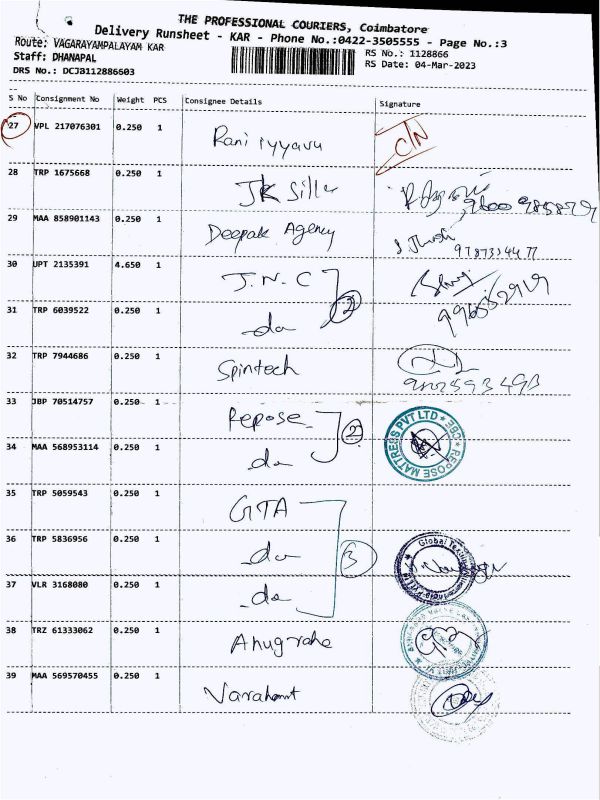 THE PROFESSIONAL COURIERS, Coimbatore
Delivery Runsheet - KAR - Phone No.:0422-3505555 - Page No.:3
Route: VAGARAYAMPALAYAM KAR
RS No.: 1128866
Staff: DHANAPAL
RS Date: 04-Mar-2023
DRS No.: DCJB112886603
S No Consignment No Weight PCS Consignee Details Signature
27 VPL 217076301 0.250 1 Rani iyyavu C/N
28 TRP 1675668 0.250 1 JK Siller
29 MAA 858901143 0.250 1 Deepak Agency
30 UPT 2135391 4.650 1 J.N.C
2
31 TRP 6039522 0.250 1 do
32 TRP 7944686 0.250 1 Spintech
33 JBP 70514757 0.250 1 Repose
2
REPOSE MATTRESS PVT LTD
34 MAA 568953114 0.250 1 do
35 TRP 5059543 0.250 1 GTA
36 TRP 5836956 0.250 1 do
3
Global
37 VLR 3168080 0.250 1 do
38 TRZ 61333062 0.250 1 Anugrahe
39 MAA 569570455 0.250 1